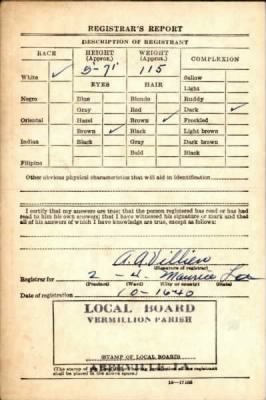 REGISTRAR'S REPORT
DESCRIPTION OF REGISTRANT
RACE HEIGHT (Approx.) WEIGHT (Approx.) COMPLEXION
5-7 115
White ✓ EYES HAIR Sallow
Light
Negro Blue Blonde Ruddy
Gray Red Dark ✓
Oriental Hazel Brown ✓ Freckled
Brown ✓ Black Light brown
Indian Black Gray Dark brown
Bald Black
Filipino
Other obvious physical characteristics that will aid in identification
I certify that my answers are true; that the person registered has read or has had
read to him his own answers; that I have witnessed his signature or mark and that
all of his answers of which I have knowledge are true, except as follows:
A. A. Villien
(Signature of registrar)
Registrar for 2 - 4. Maurice La
(Precinct) (Ward) (City or county) (State)
Date of registration 10-16-40
LOCAL BOARD
VERMILLION PARISH
(STAMP OF LOCAL BOARD)
ABBEVILLE, LA.
(The stamp of the Local Board
of the registrant
shall be placed in the above space.)